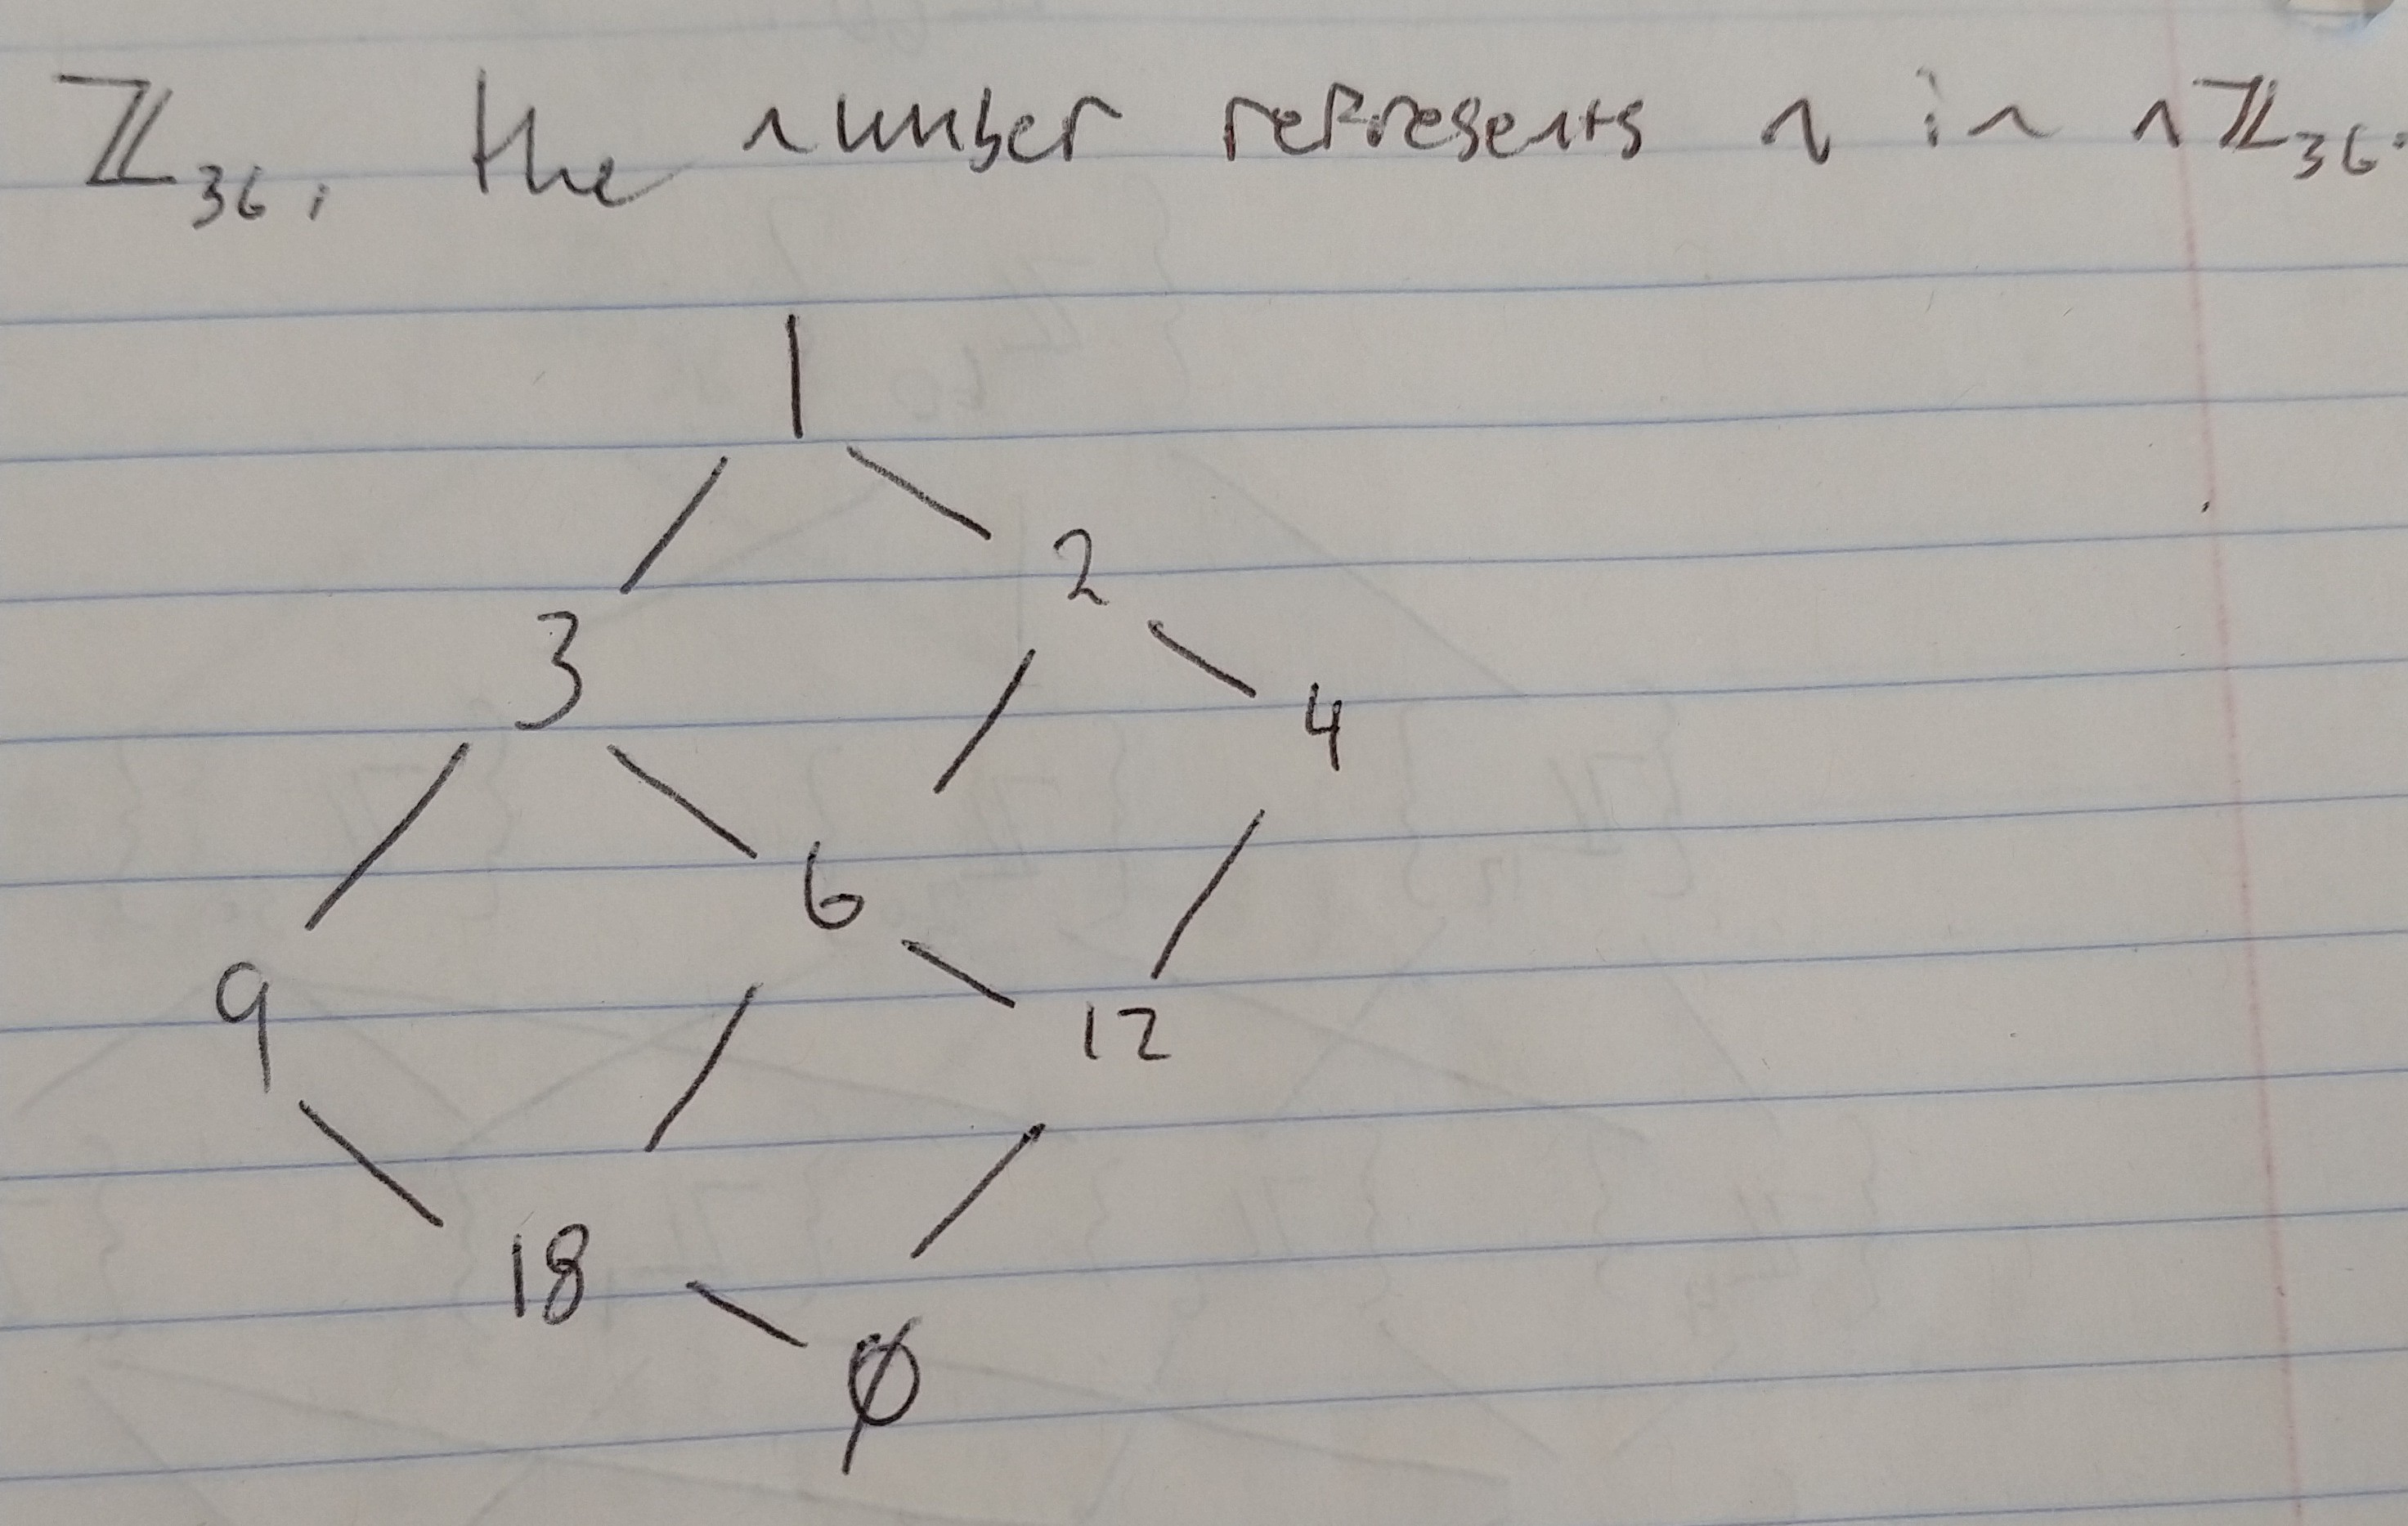 ℤ₃₆, the number represents n in nℤ₃₆.
1
2
3
4
6
9
12
18
∅